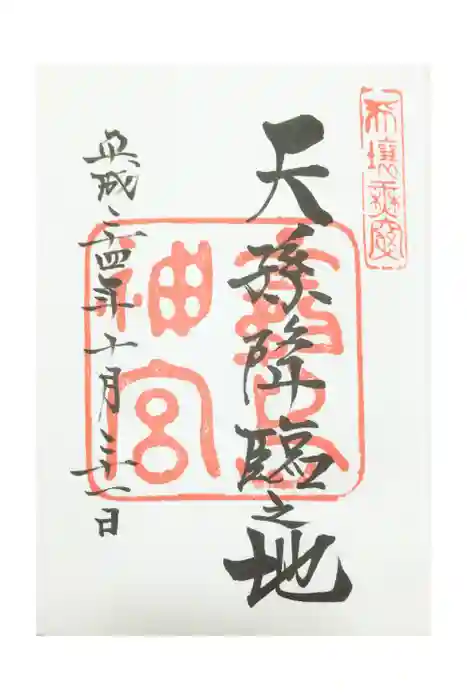 天孫降臨之地
神宮
平成二十四年十月三十一日